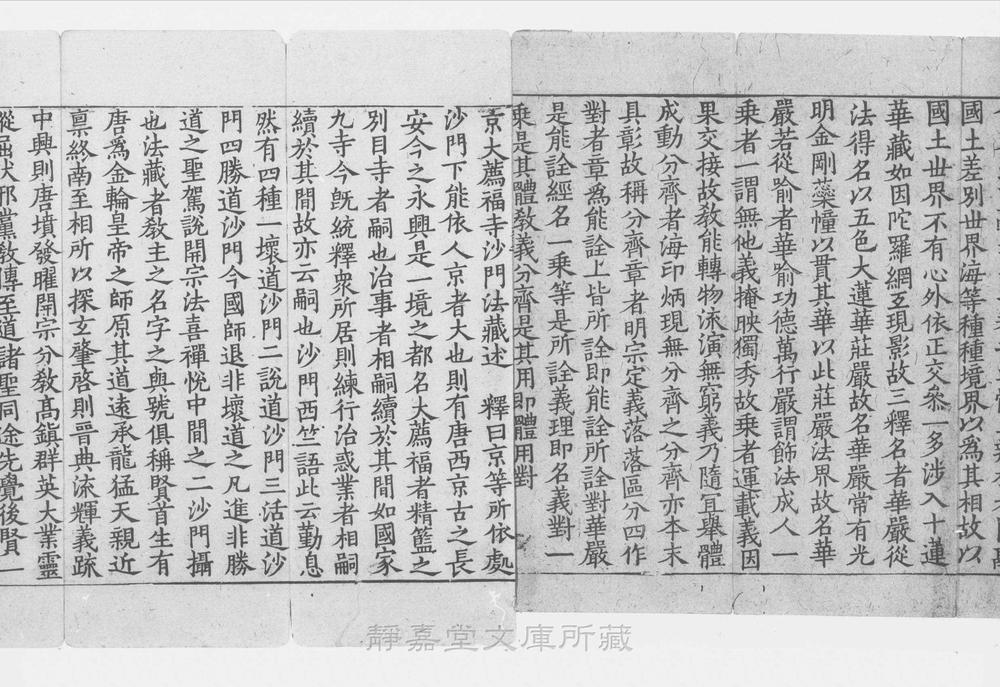 國土差別世界海等種種境界以爲其相故以
國土世界不有心外依正交參一多涉入十蓮
華藏如因陀羅網互現影故三釋名者華嚴從
法得名以五色大蓮華莊嚴故名華嚴常有光
明金剛藥幢以貫其華以此莊嚴法界故名華
嚴若從喻者華喻功德萬行嚴謂飾法成人一
乘者一謂無他義掩映獨秀故乘者運載義因
果交接故敎能轉物流演無窮義乃隨宜舉體
成動分齊者海印炳現無分齊之分齊亦本末
具彰故稱分齊章者明宗定義落落區分四作
對者章爲能詮上皆所詮即能詮所詮對華嚴
是能詮經名一乘等是所詮義理即名義對一
乘是其體敎義分齊是其用即體用對
京大薦福寺沙門法藏述　釋曰京等所依處
沙門下能依人京者大也則有唐西京古之長
安今之永興是一境之都名大薦福者精籃之
別目寺者嗣也治事者相嗣續於其間如國家
九寺今旣統釋衆所居則練行治惑業者相嗣
續於其間故亦云嗣也沙門西竺語此云勤息
然有四種一壞道沙門二說道沙門三活道沙
門四勝道沙門今國師退非壞道之凡進非勝
道之聖駕說開宗法喜禪悅中間之二沙門攝
也法藏者敎主之名字之與號俱稱賢首生有
唐爲金輪皇帝之師原其道遠承龍猛天親近
稟終南至相所以探玄肇啓則晉典流輝義疏
中興則唐墳發曜開宗分敎高鎭群英大業靈
從屈伏邪黨敎傳至道諸聖同途先覺後賢一
靜嘉堂文庫所藏